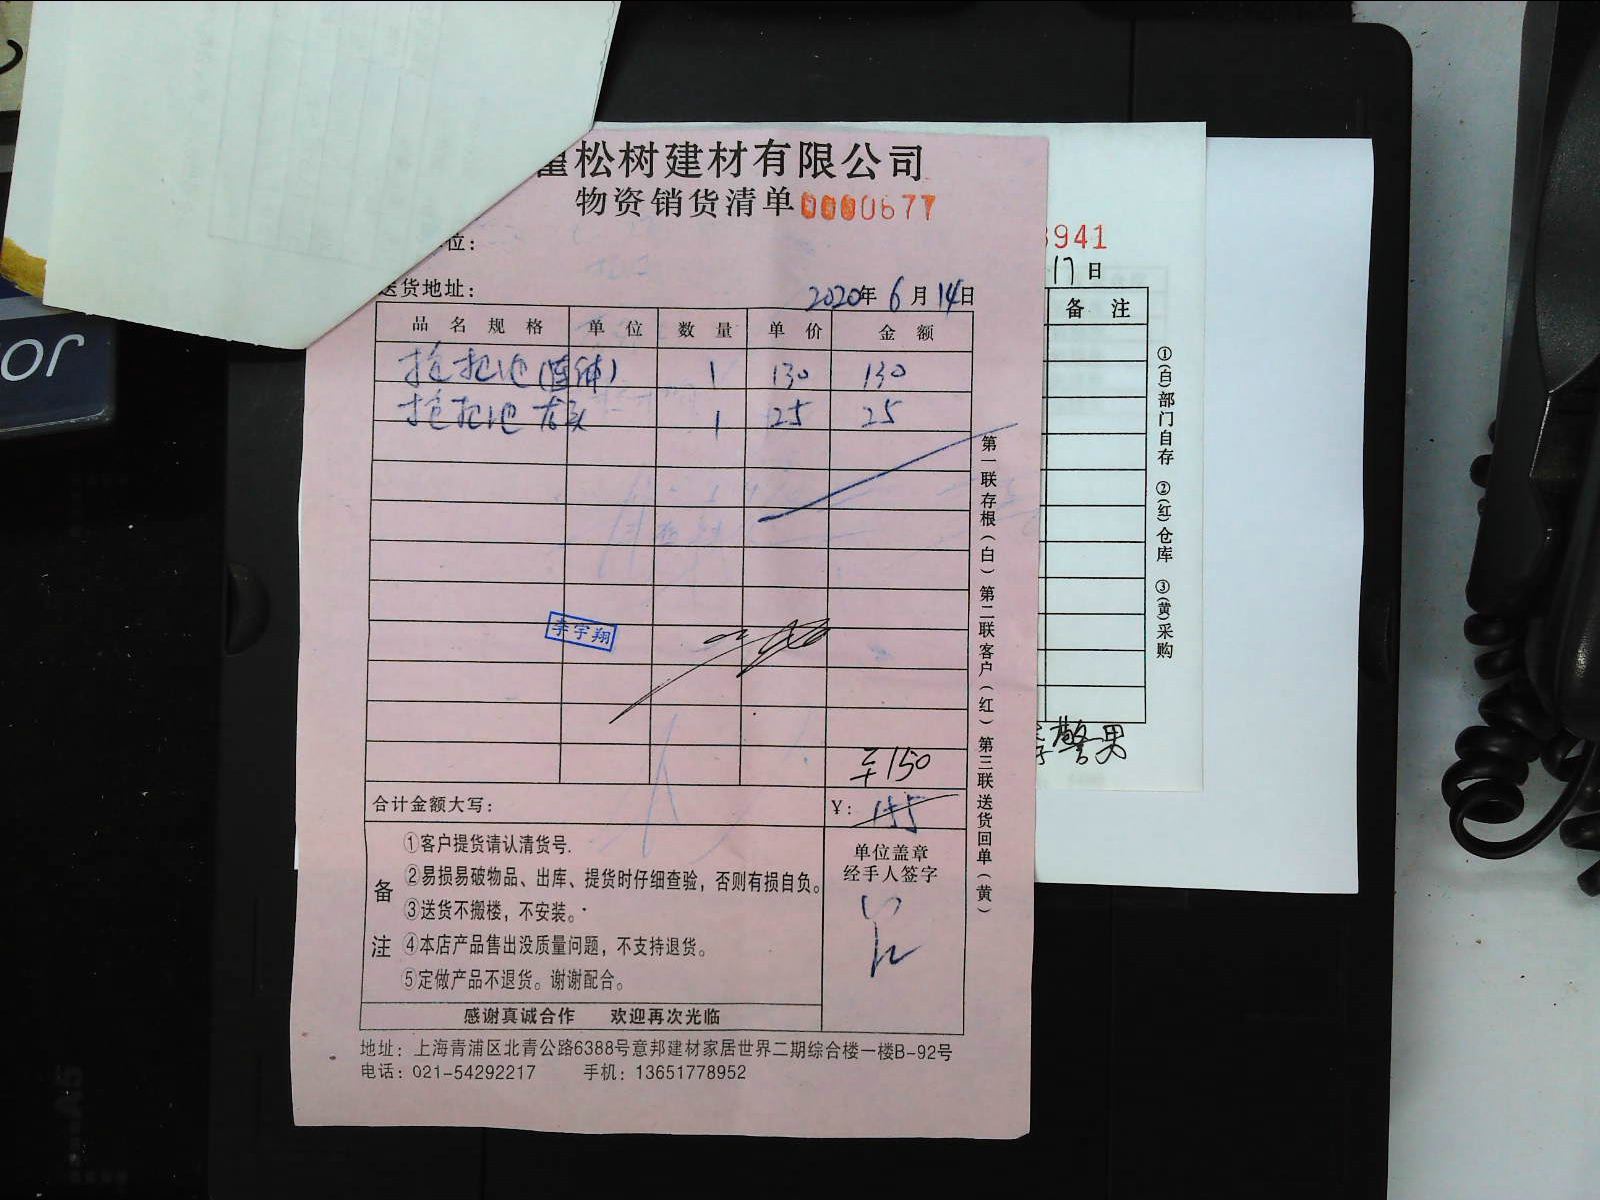 松树建材有限公司
物资销货清单 0000677
位：
送货地址：
2020年 6月 14日
品名规格 单位 数量 单价 金额
拖把池 1 130 130
拖把池 龙头 1 25 25
李宇翔
150
合计金额大写： ¥：155
备注
①客户提货请认清货号.
②易损易破物品、出库、提货时仔细查验，否则有损自负。
③送货不搬楼，不安装。
④本店产品售出没质量问题，不支持退货。
⑤定做产品不退货。谢谢配合。
单位盖章
经手人签字
感谢真诚合作 欢迎再次光临
地址：上海青浦区北青公路6388号意邦建材家居世界二期综合楼一楼B-92号
电话：021-54292217 手机：13651778952
第一联存根（白）第二联客户（红）第三联送货回单（黄）
941
17日
备注
①(自)部门自存 ②(红)仓库 ③(黄)采购
or